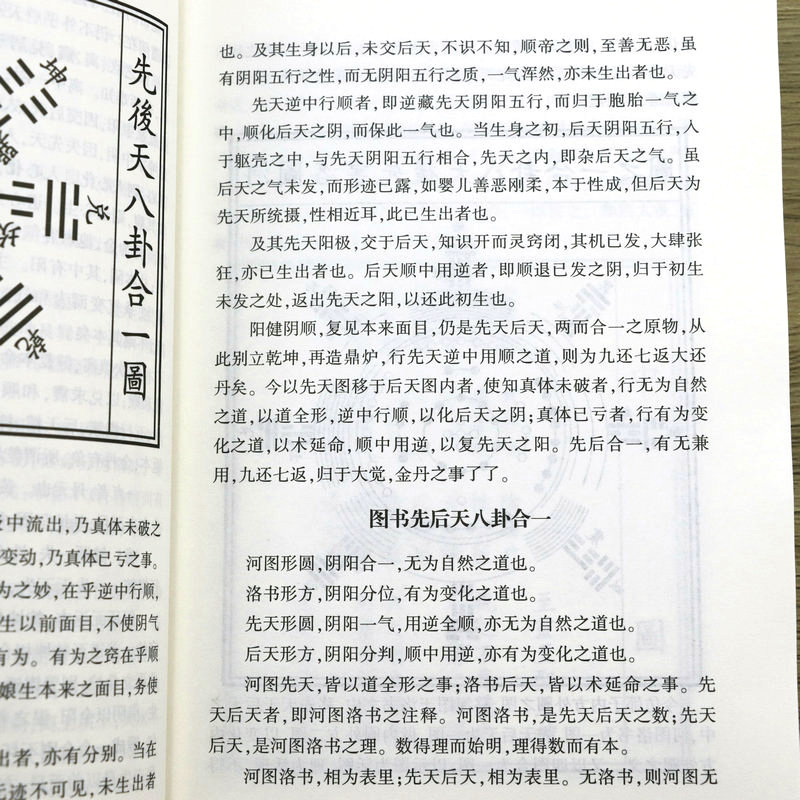 先後天八卦合一圖
坤
兑
坎
乾
中流出，乃真体未破之
变动，乃真体已亏之事。
为之妙，在乎逆中行顺，
生以前面目，不使阴气
有为。有为之窍在乎顺
娘生本来之面目，务使
出者，亦有分别。当在
无迹不可见，未生出者
也。及其生身以后，未交后天，不识不知，顺帝之则，至善无恶，虽
有阴阳五行之性，而无阴阳五行之质，一气浑然，亦未生出者也。
先天逆中行顺者，即逆藏先天阴阳五行，而归于胞胎一气之
中，顺化后天之阴，而保此一气也。当生身之初，后天阴阳五行，入
于躯壳之中，与先天阴阳五行相合，先天之内，即杂后天之气。虽
后天之气未发，而形迹已露，如婴儿善恶刚柔，本于性成，但后天为
先天所统摄，性相近耳，此已生出者也。
及其先天阳极，交于后天，知识开而灵窍闭，其机已发，大肆张
狂，亦已生出者也。后天顺中用逆者，即顺退已发之阴，归于初生
未发之处，返出先天之阳，以还此初生也。
阳健阴顺，复见本来面目，仍是先天后天，两而合一之原物，从
此别立乾坤，再造鼎炉，行先天逆中用顺之道，则为九还七返大还
丹矣。今以先天图移于后天图内者，使知真体未破者，行无为自然
之道，以道全形，逆中行顺，以化后天之阴；真体已亏者，行有为变
化之道，以术延命，顺中用逆，以复先天之阳。先后合一，有无兼
用，九还七返，归于大觉，金丹之事了了。
图书先后天八卦合一
河图形圆，阴阳合一，无为自然之道也。
洛书形方，阴阳分位，有为变化之道也。
先天形圆，阴阳一气，用逆全顺，亦无为自然之道也。
后天形方，阴阳分判，顺中用逆，亦有为变化之道也。
河图先天，皆以道全形之事；洛书后天，皆以术延命之事。先
天后天者，即河图洛书之注释。河图洛书，是先天后天之数；先天
后天，是河图洛书之理。数得理而始明，理得数而有本。
河图洛书，相为表里；先天后天，相为表里。无洛书，则河图无